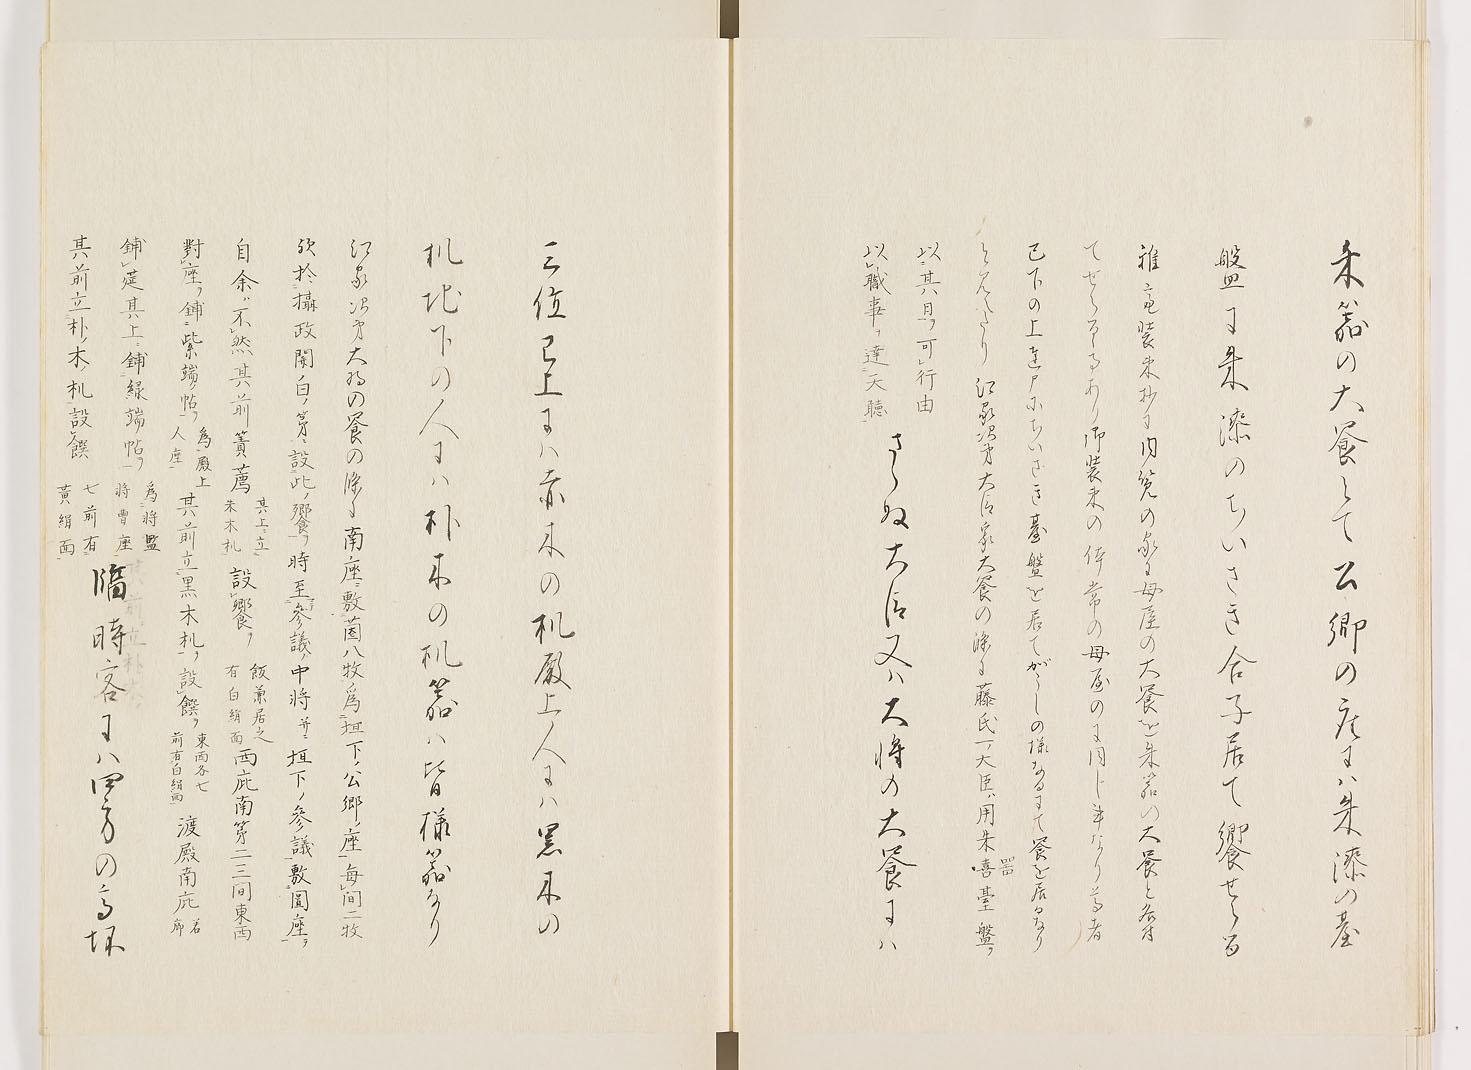 朱器の大饗とて公卿の座には朱漆の臺
盤に朱漆のちいさき合子居て饗せらる
雅亮装束抄に内覧の家は母屋の大饗を朱器の大饗と名付
てせらるゝなり御装束の体常の母屋のに同し事なり尊者
已下の上達部ちいさき臺盤を居てかうしの様なるにて饗を居るなり
とみえたり 江家次第大臣家大饗の條に藤氏一ノ大臣ハ用朱喜臺盤ヲ
器
以其日ヲ可行由
以職事ヲ達天聴
さらぬ大臣又ハ大将の大饗にハ
三位已上にハ赤木の机殿上人にハ黒木の
机地下の人にハ朴木の机器ハ皆様器なり
江家次第大将の饗の條に南ノ座ニ敷茵八牧ヲ為垣下ノ公卿ノ座毎間二牧
於攝政関白ノ第ニ設此ノ饗ヲ時至参議ノ中将并ニ垣下ノ参議敷圓座ヲ
自余ハ不然其前簀薦
其上ニ立
朱木机
設饗ヲ
飯兼居之
有白絹面
西庇南第二三間東西
對座ヲ鋪紫端ノ帖ヲ
為殿上
人座
其前立黒木机ヲ設饌ヲ
東西各七
前有白絹面
渡殿南庇
若
廊
鋪筵其上ニ鋪緑端帖ヲ
為将監
将曹座
其前立朴ノ木ノ机設饌
七前有
黄絹面
臨時客にハ四方の高坏